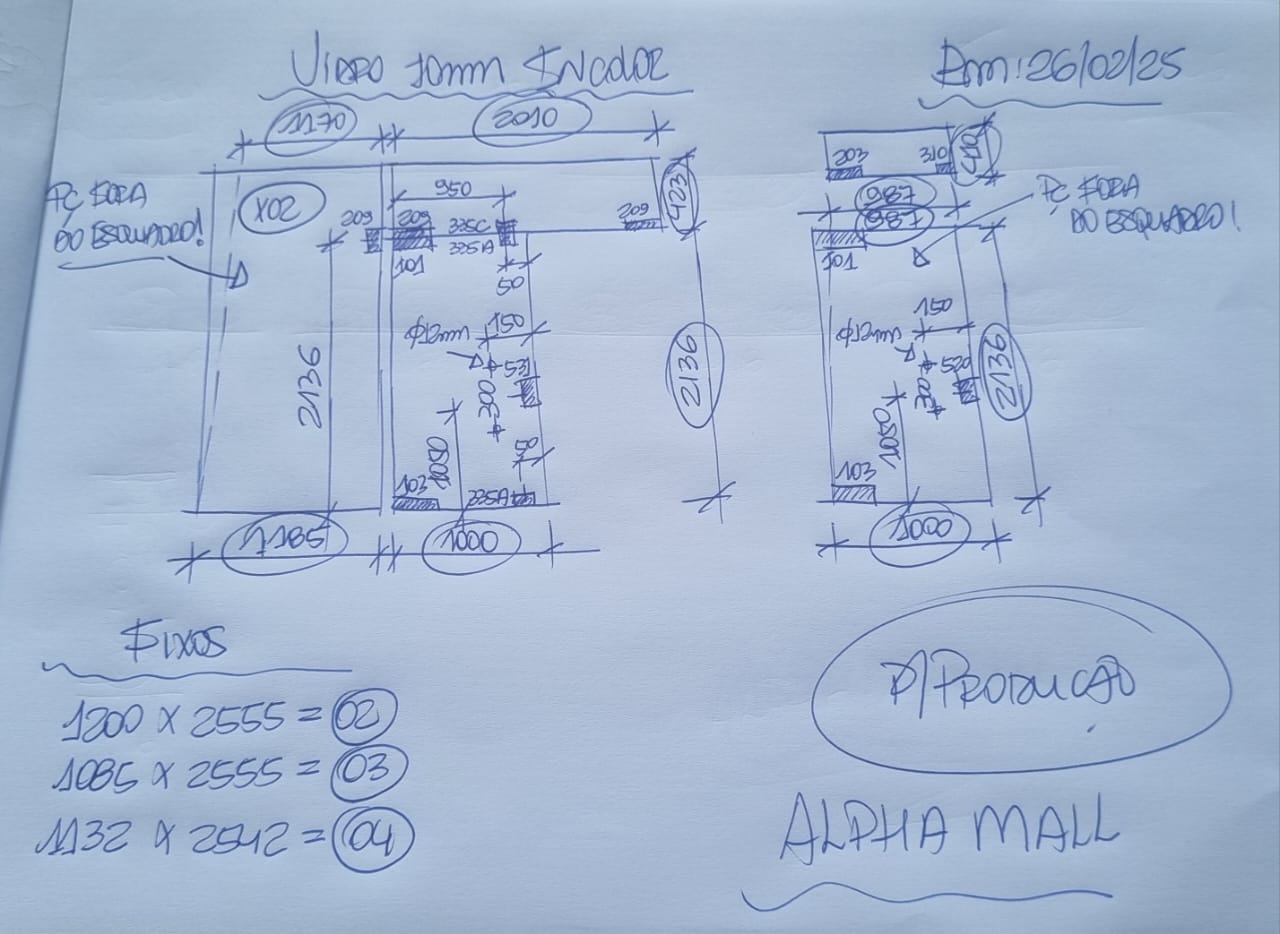 VIDRO 10mm INCOLOR
Em: 26/02/25
1170
2010
PÇ FORA
DO ESQUADRO!
X02
950
423
209
209
335C
335A
209
101
50
2136
150
531
300
1050
50
103
335A
2136
1185
1000
203
310
410
987
987
PÇ FORA
DO ESQUADRO!
101
150
520
300
1050
2136
103
1000
FIXOS
1200 X 2555 = 02
1085 X 2555 = 03
1132 X 2542 = 04
P/PRODUCAO
ALPHA MALL